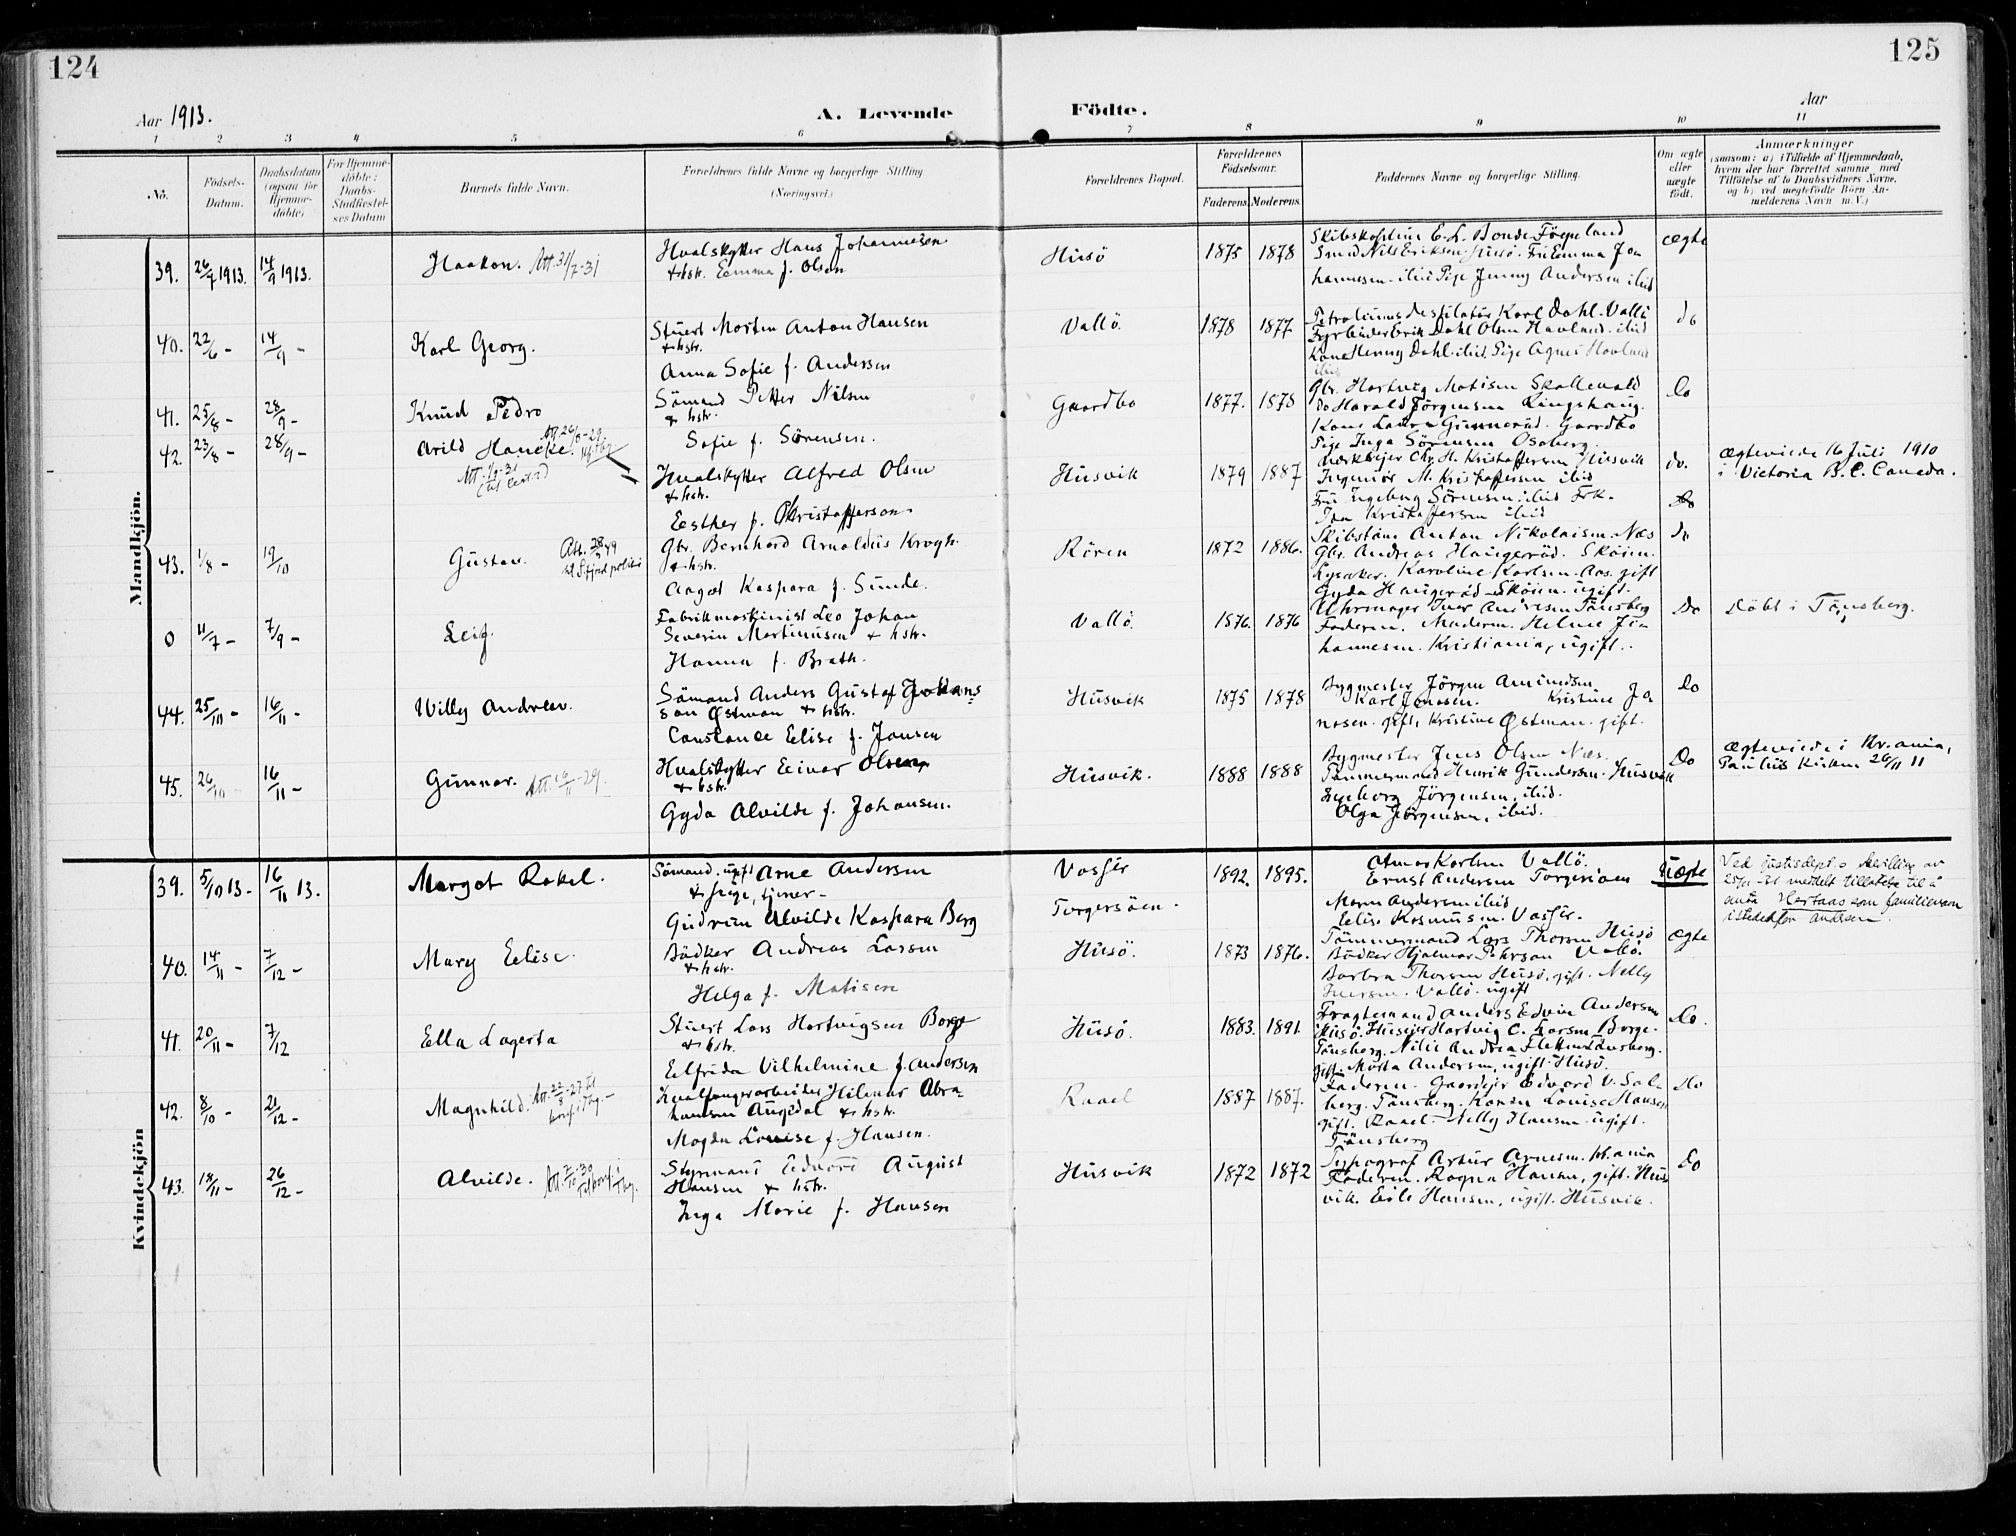 124
125
Aar 1913.
A. Levende
Födte.
Aar
1 2 3 4 5 6 7 8 9 10 11
No.
Födsels-
Datum.
Daabsdatum
(ogsaa for
Hjemme-
döbte)
For Hjemme-
döbte:
Daabs-
Stadfæstel-
ses Datum
Barnets fulde Navn.
Forældrenes fulde Navne og borgerlige Stilling
(Næringsvei.)
Forældrenes Bopæl.
Forældrenes
Födselsaar.
Faderens. Moderens.
Faddernes Navne og borgerlige Stilling.
Om ægte
eller
uægte
födt.
Anmærkninger
(saasom: a) i Tilfælde af Hjemmedaab,
hvem der har forrettet samme, med
Tilföielse af to Daabsvidners Navne,
og b) ved uegtefödte Börn An-
melderens Navn m.V.)
Mandkjön.
39. 26/7 1913. 14/9 1913.
Haakon. Att. 31/7-31
Hvalskytter Hans Johannesen
& hstr. Emma f. Olsen
Husö
1875 1878
Skibskaptein E. L. Bonde
Smed Nils Eriksen Husö. Fru Emma Jo
hannesen ibid Pige Jenny Andersen ibid
ægte
40. 22/6 - 14/9 -
Karl Georg.
Stuert Morten Anton Hansen
& hstr.
Anna Sofie f. Andersen
Vallö.
1878 1877
Petroliums destilatör Karl Dahl. Vallö
Fyrböder Erik Dahl Olsen Havland. ibid
Kone Henny Dahl. ibid. Pige Agnes Havland
ibid
do
41. 25/8 - 28/9 -
Knud Pedro
Sömand Petter Nilsen
& hstr.
Sofie f. Sörensen.
Gaardbo
1877. 1878
Gbr. Hartvig Matisen Skallevald
Do Harald Jörgensen Ringshaug.
Kone Laura Gunneröd. Gaardbo
Pige Inga Sörensen Oseberg.
Do
42. 23/8 - 28/9 -
Arild Hancke.
Hvalskytter Alfred Olsen
& hstr.
Esther f. Christoffersen
Husvik
1879 1887
Værkseier Chr. H. Kristoffersen Husvik
Ingeniör M. Kristoffersen ibid
Fru Ingeborg Sörensen ibid Frk.
Kristoffersen ibid
do.
Do
ægteviede 16 Juli 1910
i Victoria B. C. Canada.
43. 1/8 - 19/10
Gustav.
Gbr. Bernhard Arnoldus Krogh.
& hstr.
Aagot Kaspara f. Sunde.
Rören
1872 1886.
Skibstöm. Anton Nikolaisen. Næs
Gbr. Andreas Haugeröd. Sköien.
Karoline Karlsen. Aas. gift
Gyda Haugeröd Sköien. ugift.
Do
0 11/7 - 7/9 -
Leif.
Fabrikmaskinist Leo Johan
Severin Martinusen & hstr.
Hanna f. Brath.
Vallö.
1876. 1876
Uhrmager Ivar Andresen Tönsberg
Faderen. Moderen. Helene Jo-
hannesen. Kristiania, ugift.
Do
Döbt i Tönsberg.
44. 25/10 - 16/11 -
Willy Andreas.
Sömand Anders Gustaf Johans
son Östman & hstr.
Constance Elise f. Jansen
Husvik
1875 1878
Bygmester Jörgen Amundsen
Karl Jonasen. Kristine Jo
nasen. gift, Kristine Östman. gift.
Do
45. 26/10 - 16/11 -
Gunnar. Att. 19/11-29.
Hvalskytter Einar Olsen
& hstr.
Gyda Alvilde f. Johansen.
Husvik.
1888 1888
Bygmester Jens Olsen Næs.
Tömmermand Henrik Gundersen. Husvik
Ingeborg Jörgensen, ibid.
Olga Jörgensen, ibid.
Do
ægteviede i Kr.ania,
Paulus Kirken 26/11 11
Kvindekjön
39. 5/10 13 - 16/11 13.
Margot Rakel.
Sömand ugift Arne Andersen
& pige, tjener -
Gudrun Alvilde Kaspara Berg
Vasser
Torgersöen.
1892. 1895.
Karlsen Vallö.
Ernst Andersen Torgersöen
Maren Andersen ibid
Elise Rasmussen. Vasser.
Uægte
meddelt tillatelse til å
som familienavn
istedetfor Andersen.
40. 14/11 - 7/12 -
Mary Elise.
Bödker Andreas Larsen
& hstr.
Helga f. Matisen
Husö.
1873 1876.
Tömmermand Lars Thorsen Husö
Bödker Hjalmar Vallö.
Barbra Thorsen Husö, gift. Nelly
Iversen. Vallö. ugift
ægte
41. 20/11 - 7/12
Ella Lagerta
Stuert Lars Hartvigsen Borge
& hstr.
Elfrida Vilhelmine f. Andersen
Husö.
1883. 1891
Fragtemand Anders Edvin Andersen
Husö. Huseier Hartvig C. Larsen Borge.
Tönsberg. Andrea Tönsberg.
gift. Marta Andersen, ugift. Husö.
Do.
42. 8/10 - 21/12 -
Magnhild.
Hvalfangerarbeider Hilmar Abra-
hamsen Augedal & hstr.
Magda Louise f. Hansen.
Raael
1887 1887.
Faderen. Gaardeier Edvard V. Sol-
berg. Tönsberg. Konen Louise Hansen
gift. Raael. Nelly Hansen ugift.
Tönsberg
Do
43. 18/11 - 26/12 -
Alvilde.
Styrmand Edvard August
Hansen & hstr.
Inga Marie f. Hansen
Husvik
1872 1872
Typograf Artur Arnesen. Kr.ania
Faderen. Ragna Hansen, gift. Hus
vik. Hansen, ugift. Husvik.
Do